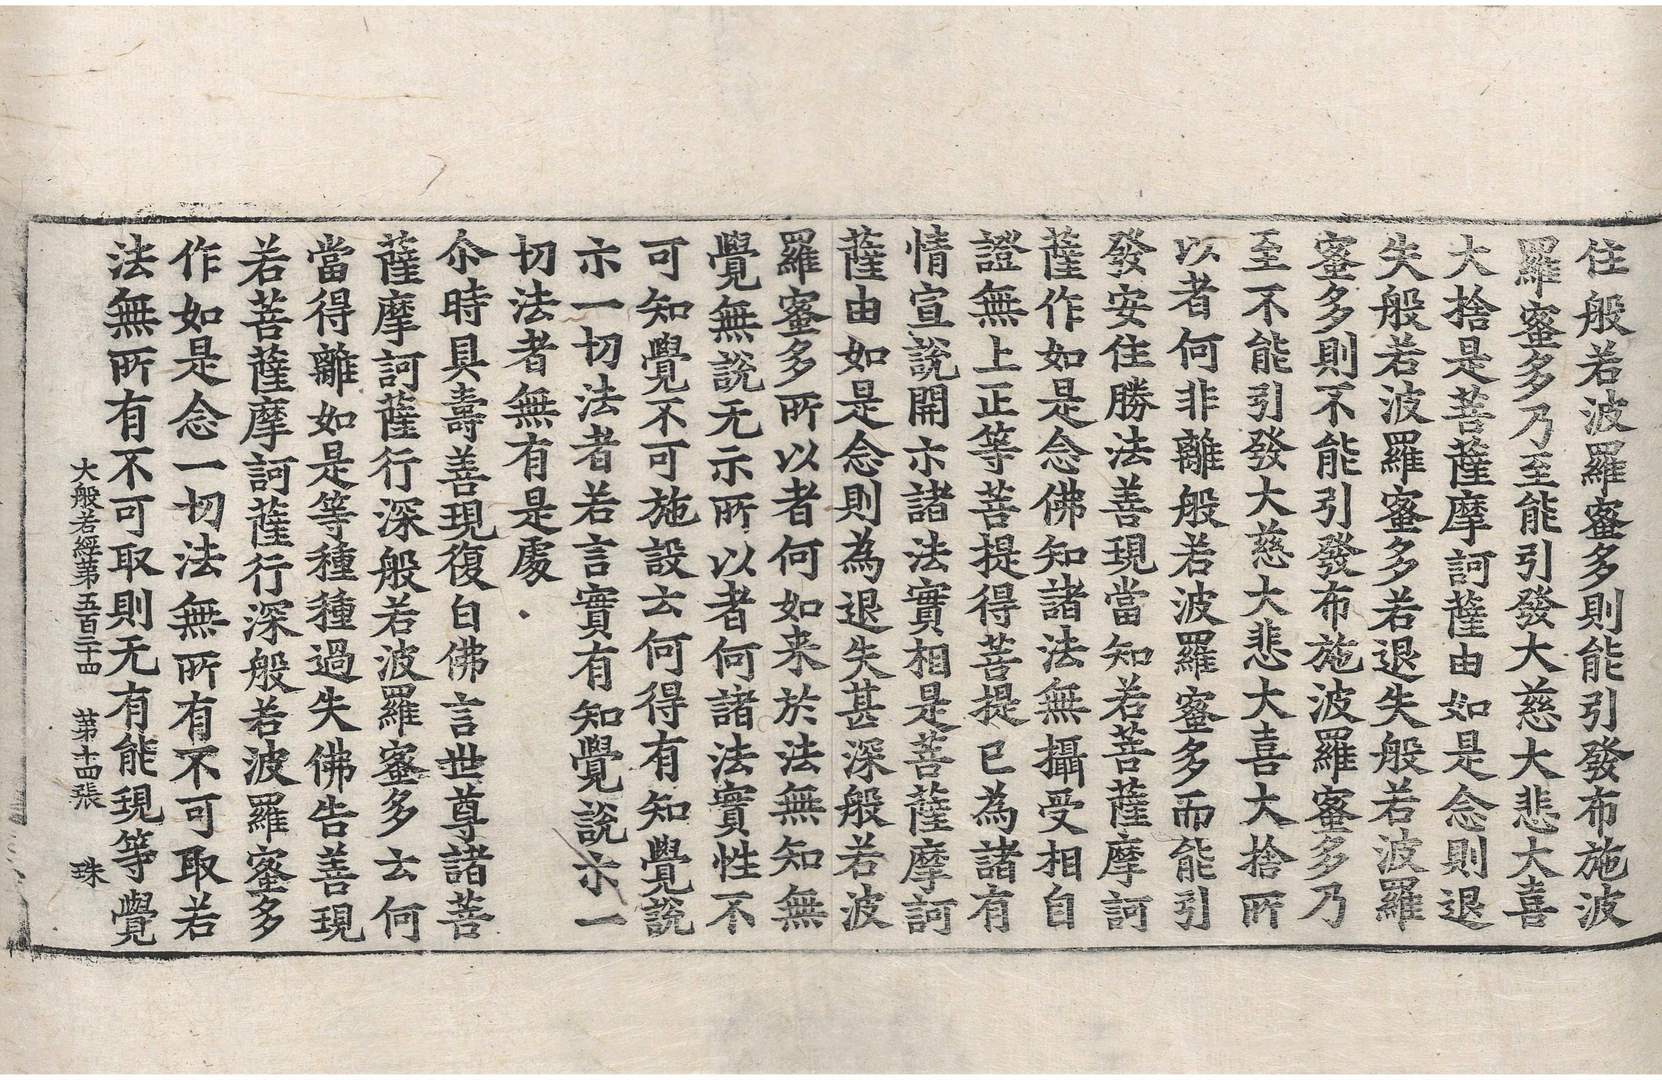 住般若波羅蜜多則能引發布施波
羅蜜多乃至能引發大慈大悲大喜
大捨是菩薩摩訶薩由如是念則退
失般若波羅蜜多若退失般若波羅
蜜多則不能引發布施波羅蜜多乃
至不能引發大慈大悲大喜大捨所
以者何非離般若波羅蜜多而能引
發安住勝法善現當知若菩薩摩訶
薩作如是念佛知諸法無攝受相自
證無上正等菩提得菩提已為諸有
情宣說開示諸法實相是菩薩摩訶
薩由如是念則為退失甚深般若波
羅蜜多所以者何如来於法無知無
覺無說无示所以者何諸法實性不
可知覺不可施設云何得有知覺說
示一切法者若言實有知覺說示一
切法者無有是處
尒時具壽善現復白佛言世尊諸菩
薩摩訶薩行深般若波羅蜜多云何
當得離如是等種種過失佛告善現
若菩薩摩訶薩行深般若波羅蜜多
作如是念一切法無所有不可取若
法無所有不可取則无有能現等覺
大般若經苐五百二十四 苐十四張 珠